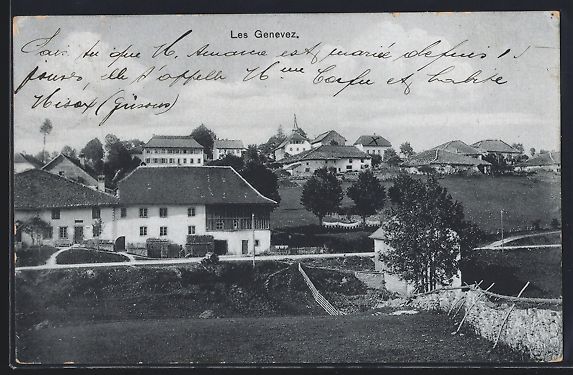 Les Genevez.
Sais tu que M. Amann est marié depuis 15
jours, elle s'appelle Mme et habite
(Grisons)